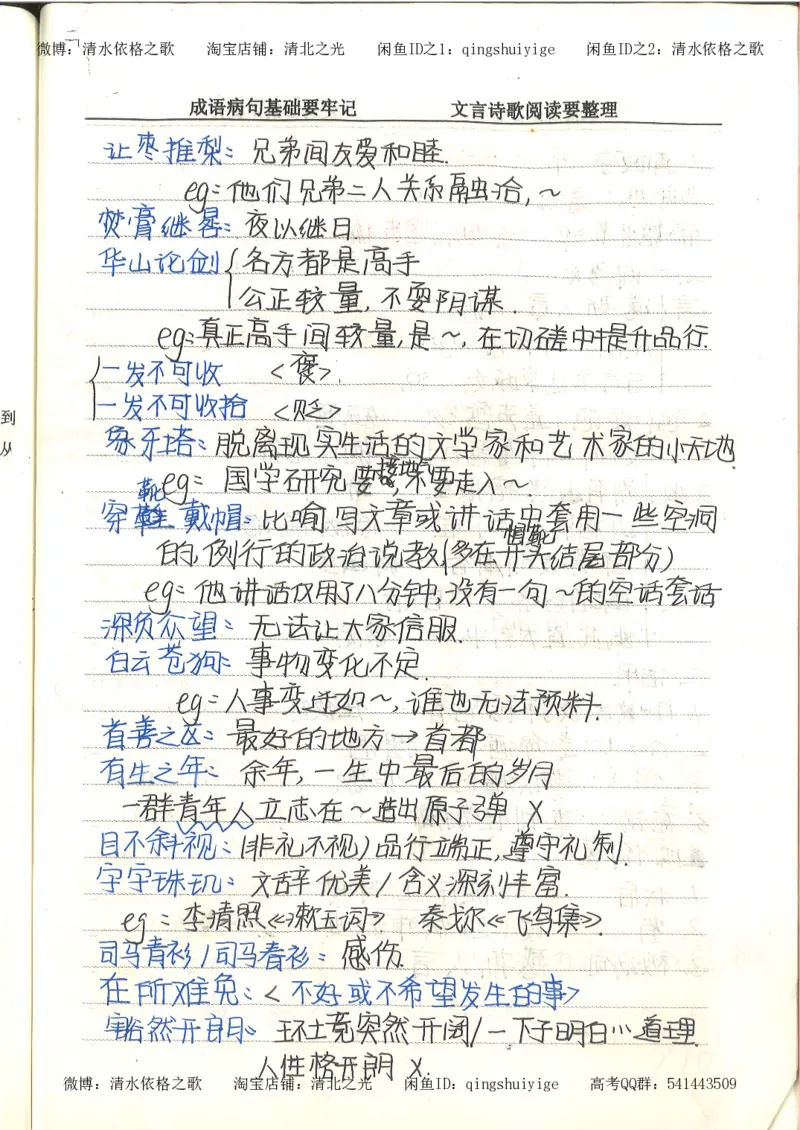 微博：清水依格之歌 淘宝店铺：清北之光 闲鱼ID之1：qingshuiyige 闲鱼ID之2：清水依格之歌
成语病句基础要牢记 文言诗歌阅读要整理
让枣推梨：兄弟间友爱和睦.
eg：他们兄弟二人关系融洽，~
焚膏继晷：夜以继日
华山论剑{各方都是高手
公正较量，不耍阴谋.
eg：真正高手间较量，是~，在切磋中提升品行.
一发不可收 <褒>.
一发不可收拾 <贬>
到
从
象牙塔：脱离现实生活的文学家和艺术家的小天地.
eg：国学研究要接地气，不要走入~.
穿靴戴帽：比喻写文章或讲话中套用一些空洞
的，例行的政治说教(多在开头结尾部分)
帽 靴
eg：他讲话仅用了八分钟，没有一句~的空话套话
深负众望：无法让大家信服.
白云苍狗：事物变化不定.
eg：人事变迁如~，谁也无法预料.
首善之区：最好的地方→首都
有生之年：余年，一生中最后的岁月
一群青年人立志在~造出原子弹 ×
目不斜视：(非礼不视)品行端正，遵守礼制.
字字珠玑：文辞优美/含义深刻丰富.
eg：李清照《漱玉词》 泰戈尔《飞鸟集》.
司马青衫/司马春衫：感伤.
在所难免：<不好或不希望发生的事>
豁然开朗：环境突然开阔/一下子明白心道理.
人性格开朗 ×.
微博：清水依格之歌 淘宝店铺：清北之光 闲鱼ID：qingshuiyige 高考QQ群：541443509